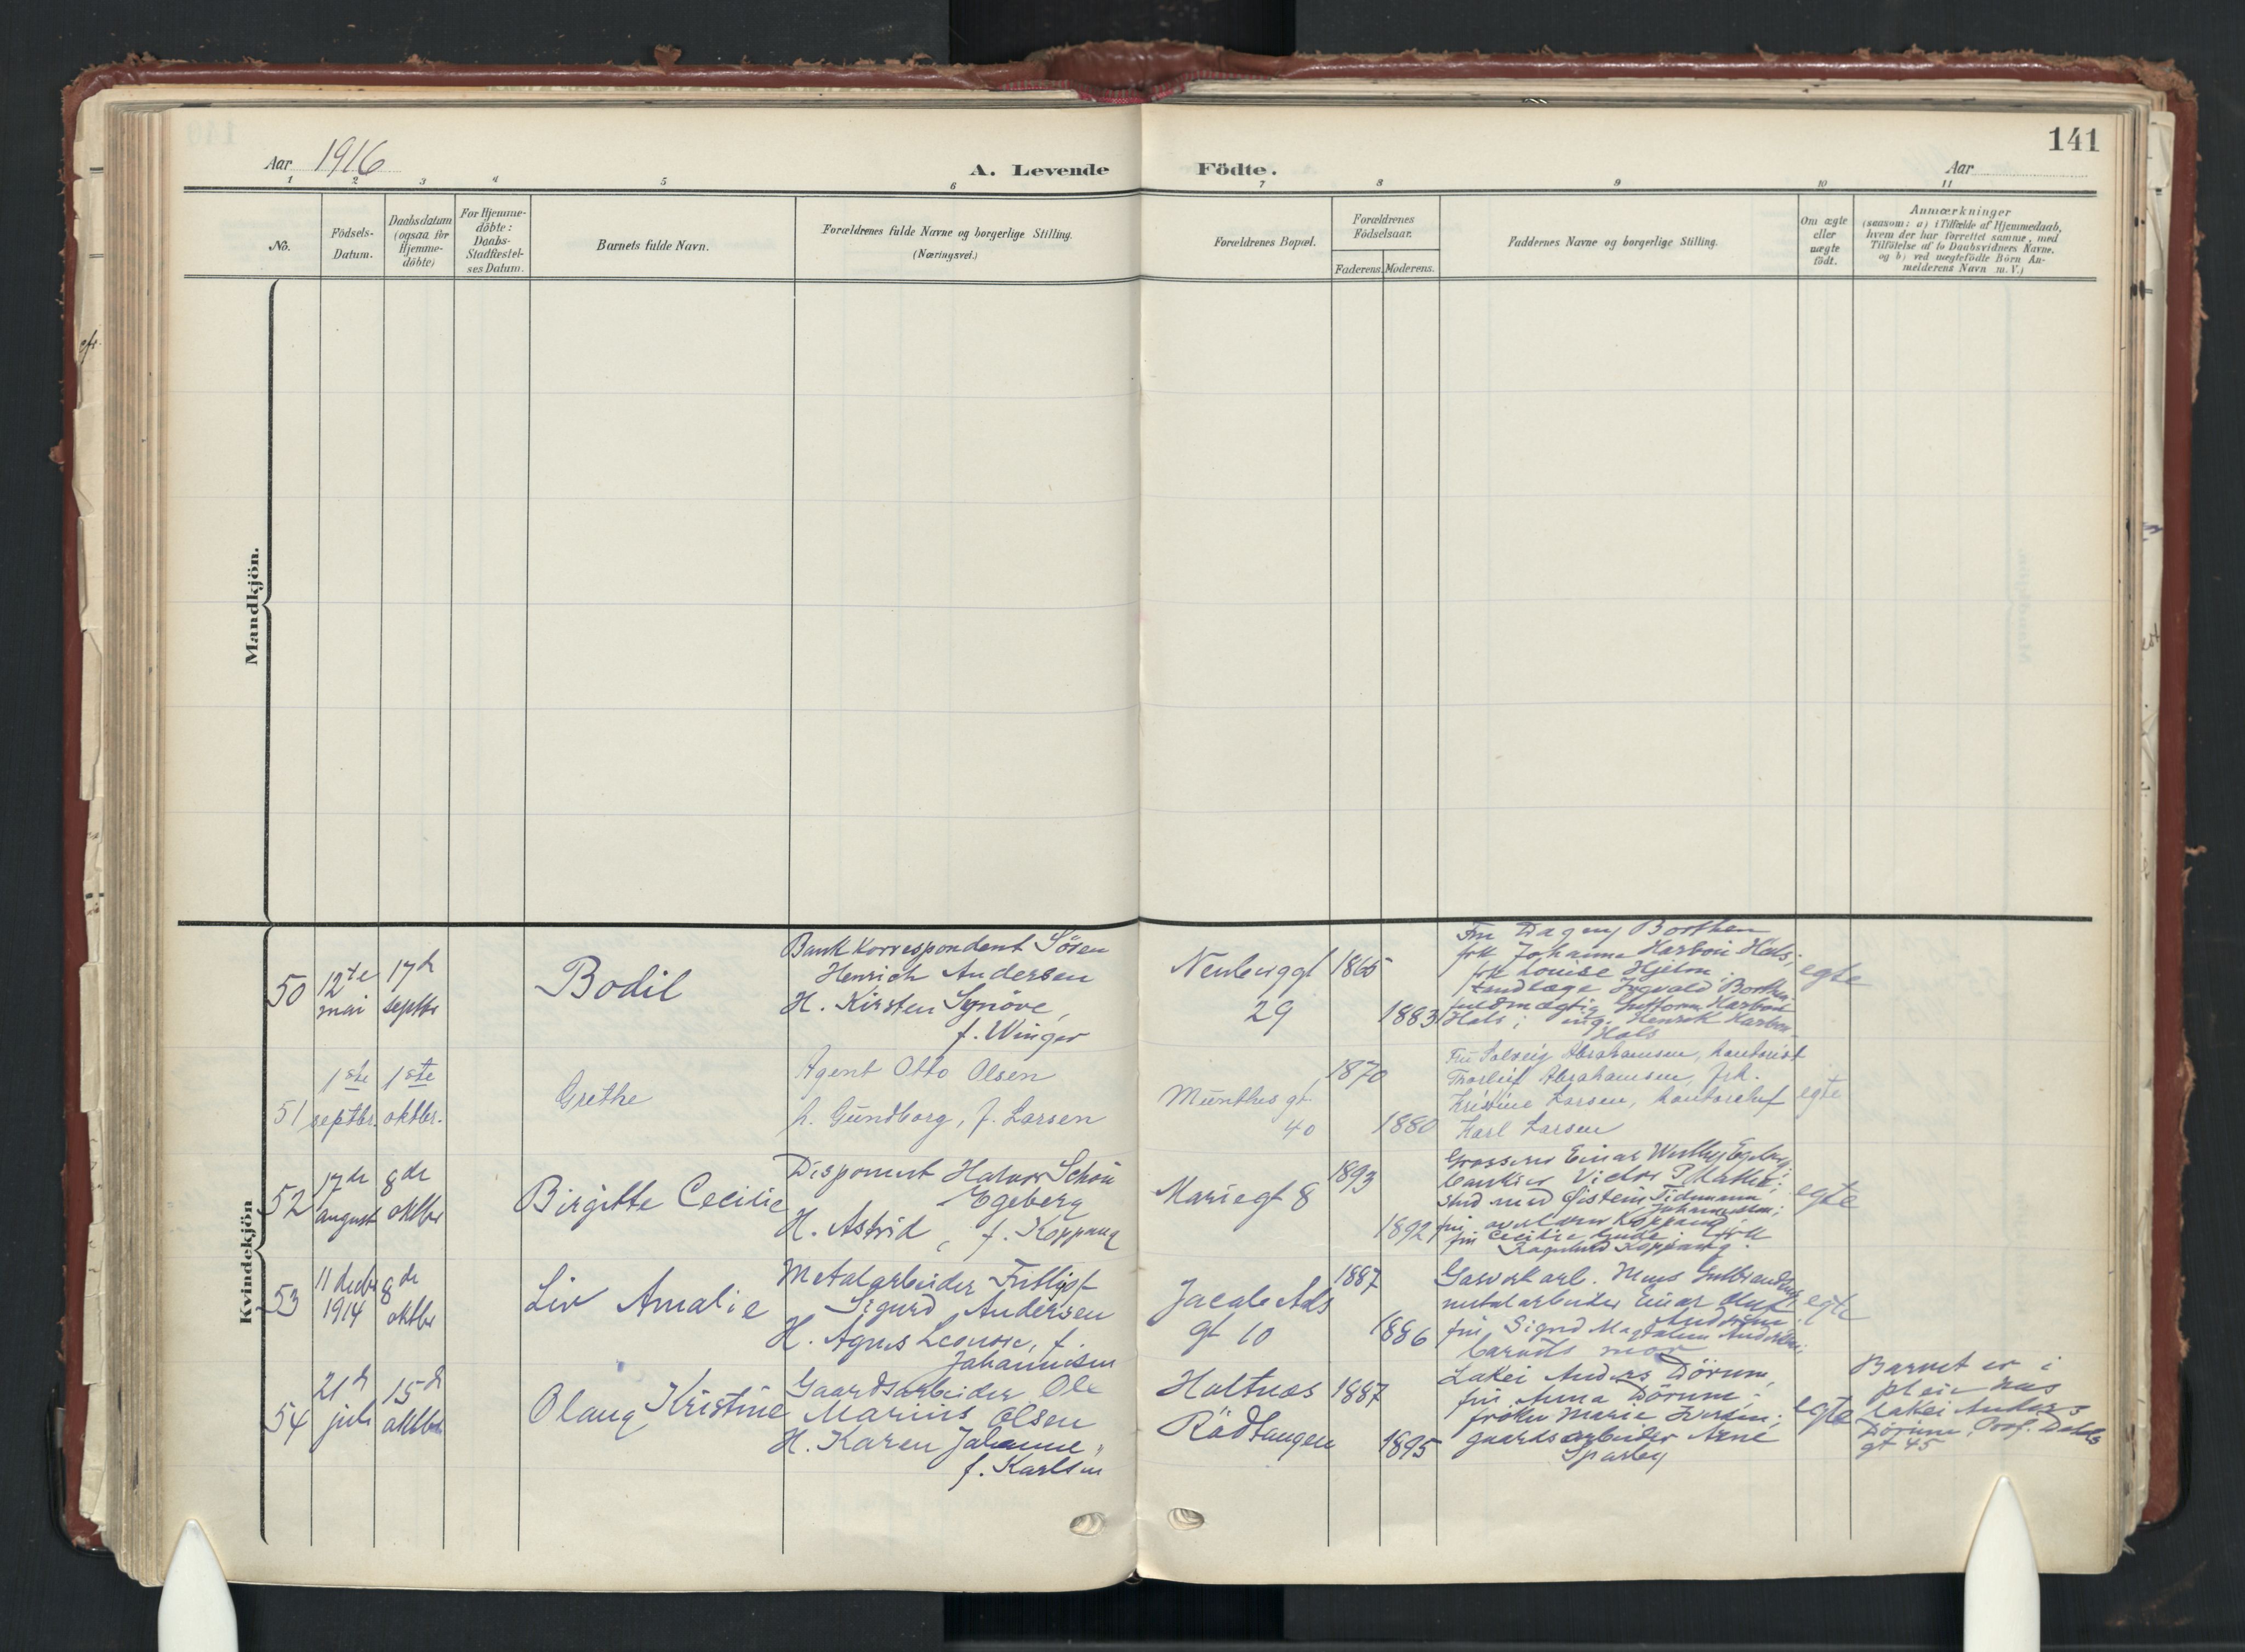 141
Aar 1916
A. Levende
Födte.
Aar
1 2 3 4 5 6 7 8 9 10 11
No.
Födsels-
Datum.
Daabsdatum
(ogsaa for
Hjemme-
döbte)
For Hjemme-
döbte:
Daabs-
Stadfæstel-
ses Datum.
Barnets fulde Navn.
Forældrenes fulde Navne og borgerlige Stilling.
(Næringsvei.)
Forældrenes Bopæl.
Forældrenes
Födselsaar.
Faderens. Moderens.
Faddernes Navne og borgerlige Stilling.
Om ægte
eller
uægte
födt.
Anmærkninger
(saasom: a) i Tilfælde af Hjemmedaab,
hvem der har forrettet samme, med
Tilföielse af to Daabsvidners Navne.
og b) ved uægtefödte Börn An-
melderens Navn m. V.)
Mandkjön.
Kvindekjön
50
12te
mai
17de
septbr
Bodil
Bankkorrespondent Sören
Henrich Andersen
H. Kirsten Synöve,
f. Winger
Neuberggt
29
1865
1883
Fru Dagny Borthen
frk Johanna Harboe Hals;
frk Louise Hjelm
tandlæge Ingvald Borthen
fuldmægtig Guttorm Harboe
Hals; ing. Henrik Harboe
Hals
egte
51
1ste
septbr.
1ste
oktbr.
Grethe
Agent Otto Olsen
h. Gundborg, f. Larsen
Munthes gt.
40
1870
1880
Fru Solveig Abrahamsen, kontorist
Thorleif Abrahamsen, frk.
Kristine Larsen, kontorchef
Karl Larsen
egte
52
17de
august
8de
oktbr
Birgitte Cecilie
Disponent Halvor Schou
Egeberg
H. Astrid, f. Koppang
Mariegt 8
1893
1892
Grosserer Einar Westbye Egeberg
bankier Victor P Mathe;
stud med Øistein Tidemann
Johannessen;
Koppang
fru Cecilie
Ragnhild Koppang.
egte
53
11 decbr
1914
8de
oktbr
Liv Amalie
Metalarbeider Fritljof
Sigurd Andersen
H. Agnes Leonore, f.
Johannesen
Jacob Aalls
gt 10
1887
1886
Gasverkarb. Mens Gulbrandsen
metalarbeider Einar Olaf
Andersen
fru Sigrid Magdalene Andersen;
barnets mor
egte
54
21de
juli
15de
oktbr
Olaug Kristine
Gaardsarbeider Ole
Marius Olsen
H. Karen Johanne,
f. Karlsen
Holtnæs
Rödtangen
1887
1895
Lakei Anders Dörum,
fru Anna Dörum;
fröken Marie Iversen;
gaardsarbeider Arne
Sparby
egte
Barnet er i
pleie hos
lakei Anders
Dörum, Prof. Dahls
gt 45